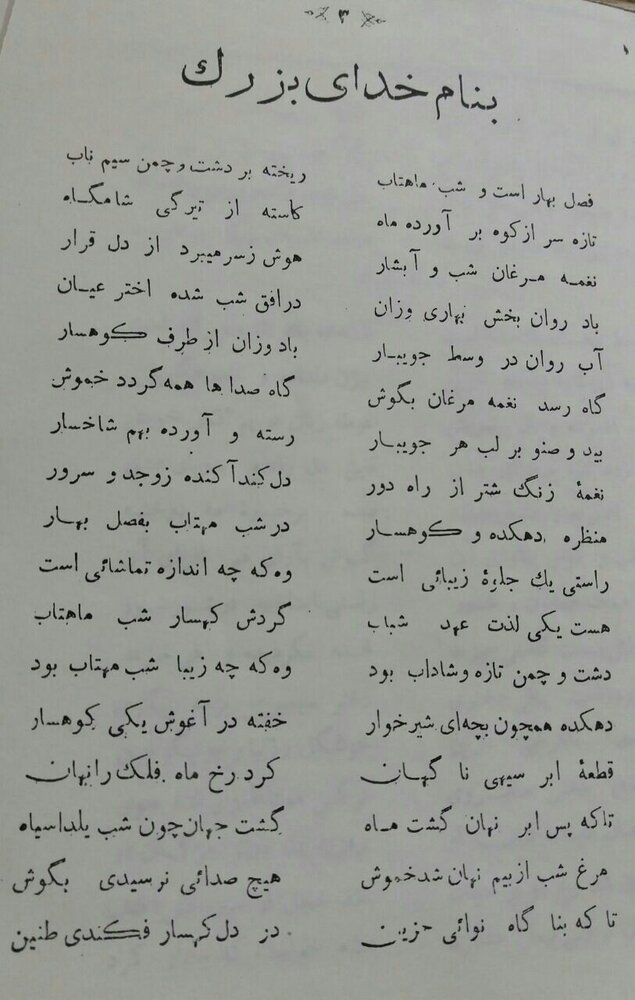 ۳
بنام خدای بزرك
فصل بهار است و شب ماهتاب ریخته بر دشت و چمن سیم ناب
تازه سر ازکوه بر آورده ماه کاسته از تیرگی شامگاه
نغمه مرغان شب و آبشار هوش زسر میبرد از دل قرار
باد روان بخش بهاری وزان درافق شب شده اختر عیان
آب روان در وسط جویبار باد وزان از طرف کوهسار
گاه رسد نغمه مرغان بگوش گاه صدا ها همه گردد خموش
بید و صنو بر لب هر جویبار رسته و آورده بهم شاخسار
نغمهٔ زنگ شتر از راه دور دل کند آکنده زوجد و سرور
منظره دهکده و کوهسار در شب مهتاب بفصل بهار
راستی یك جلوهٔ زیبائی است وه که چه اندازه تماشائی است
هست یکی لذت عهد شباب گردش کهسار شب ماهتاب
دشت و چمن تازه وشاداب بود وه که چه زیبا شب مهتاب بود
دهکده همچون بچه‌ای شیرخوار خفته در آغوش یکی کوهسار
قطعهٔ ابر سیهی نا گهان کرد رخ ماه فلك را نهان
تاکه پس ابر نهان گشت ماه گشت جهان چون شب یلدا سیاه
مرغ شب ازبیم نهان شد خموش هیچ صدائی نرسیدی بگوش
تا که بنا گاه نوائی حزین در دل کهسار فکندی طنین